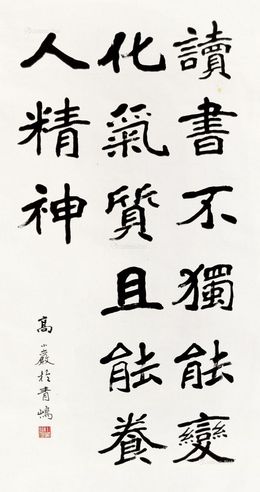 讀書不獨能變
化氣質且能養
人精神
高小巖於青島